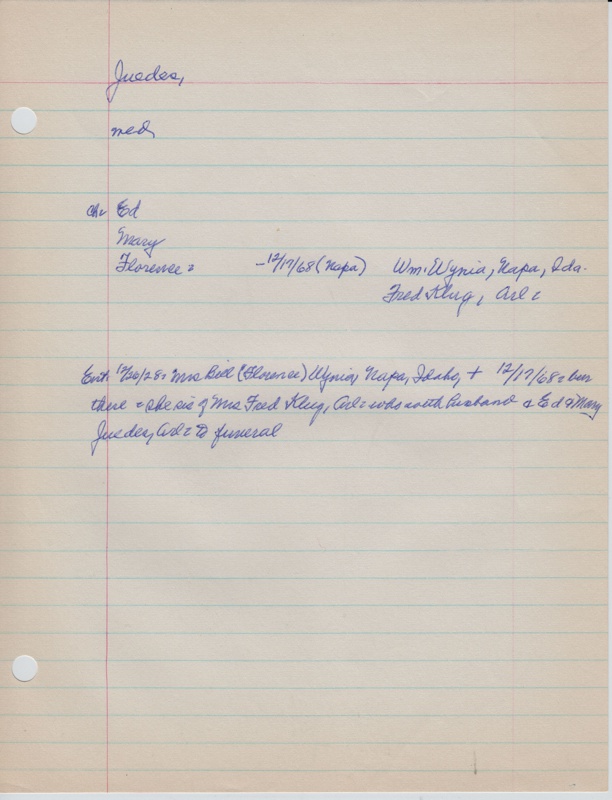 Juedes,
med,
ch: Ed
Mary
Florence = -12/17/68 (Napa) Wm. Wynia, Napa, Ida.
Fred Klug, Arl:
Ent. 12/26/28: Mrs Bill (Florence) Wynia, Napa, Idaho, + 12/17/68 = bur
there = she sis of Mrs Fred Klug, Arl: who with husband & Ed & Mary
Juedes, Arl: to funeral